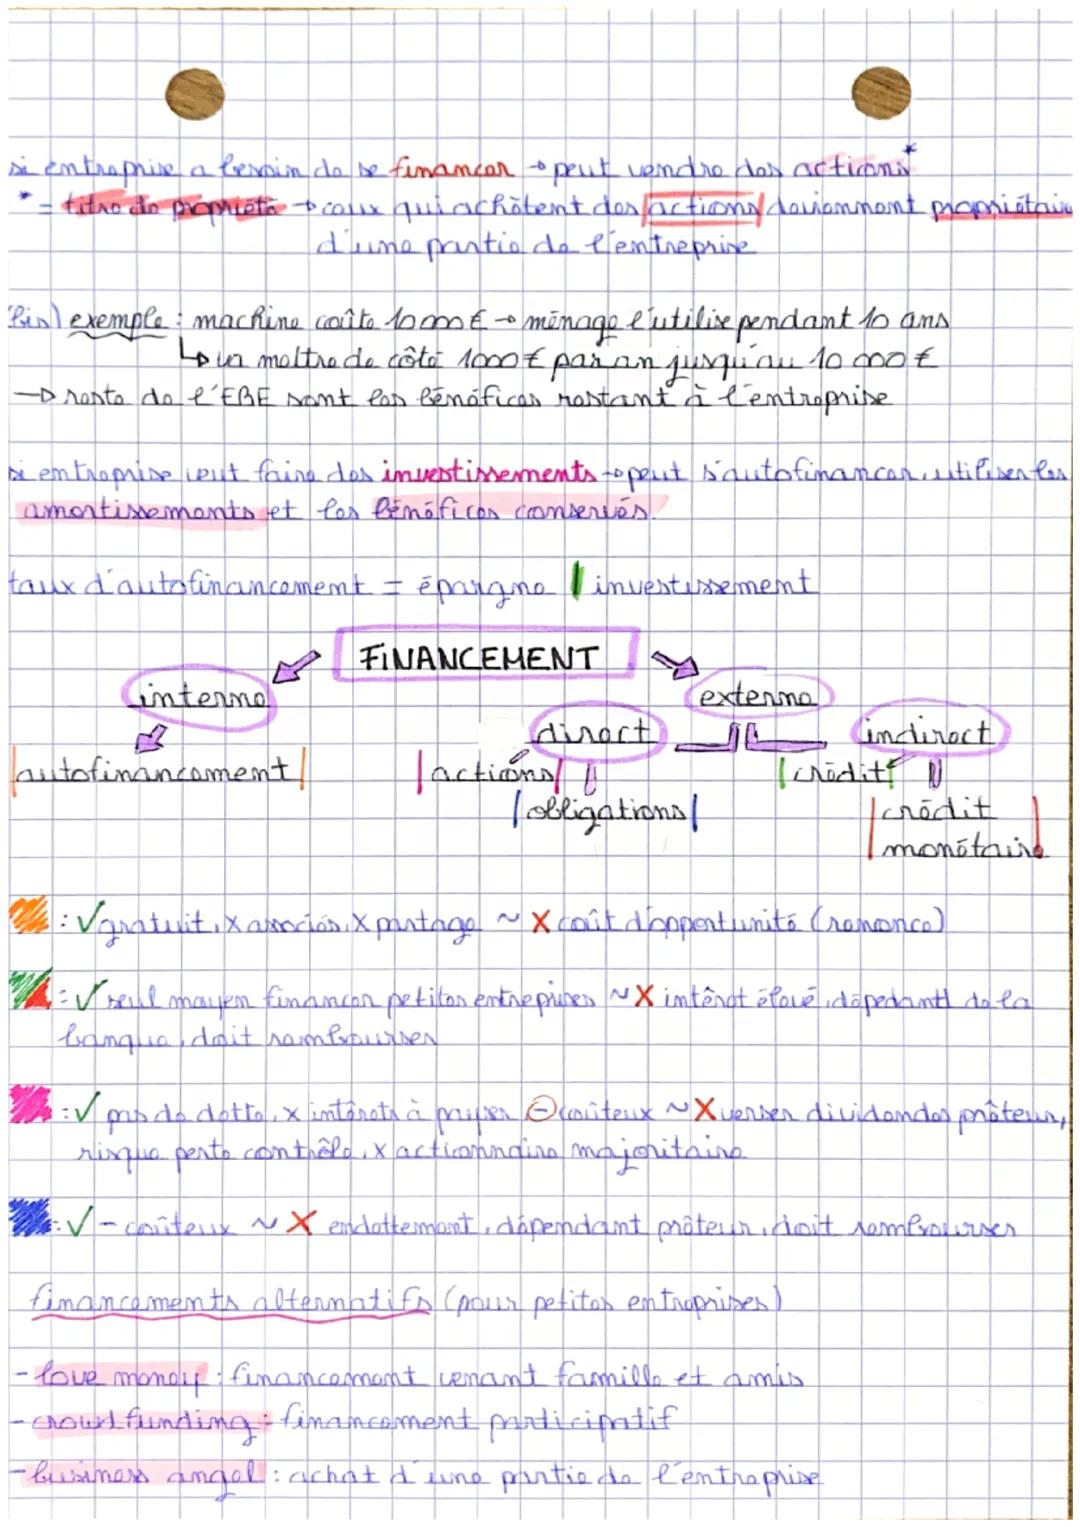 si entreprise a besoin de se financer → peut vendre des actions*
* = titre de propriété → ceux qui achètent des actions deviennent propriétair
d'une partie de l'entreprise
bis) exemple : machine coûte 10 000 € → ménage l'utilise pendant 10 ans
↳ va mettre de côté 1000 € par an jusqu'au 10 000 €
→ reste de l'EBE sont les bénéfices restant à l'entreprise
si entreprise veut faire des investissements → peut s'autofinancer, utiliser les
amortissements et les bénéfices conservés.
taux d'autofinancement = épargne / investissement
FINANCEMENT
interne externe
direct indirect
autofinancement actions crédit
obligations crédit
monétaire
: ✓ gratuit, x associés, x partage ~ X coût d'opportunité (renonce)
: ✓ seul moyen financer petites entreprises ~ X intérêt élevé, dépedantt de la
banque, doit rembourser
: ✓ pas de dette, x intérêts à payer ⊖ coûteux ~ X verser dividendes prêteur,
risque perte contrôle, x actionnaire majoritaire
: ✓ - coûteux ~ X endettement, dépendant prêteur, doit rembourser
financements alternatifs (pour petites entreprises)
- love money : financement venant famille et amis
- crowdfunding : financement participatif
- business angel : achat d'une partie de l'entreprise